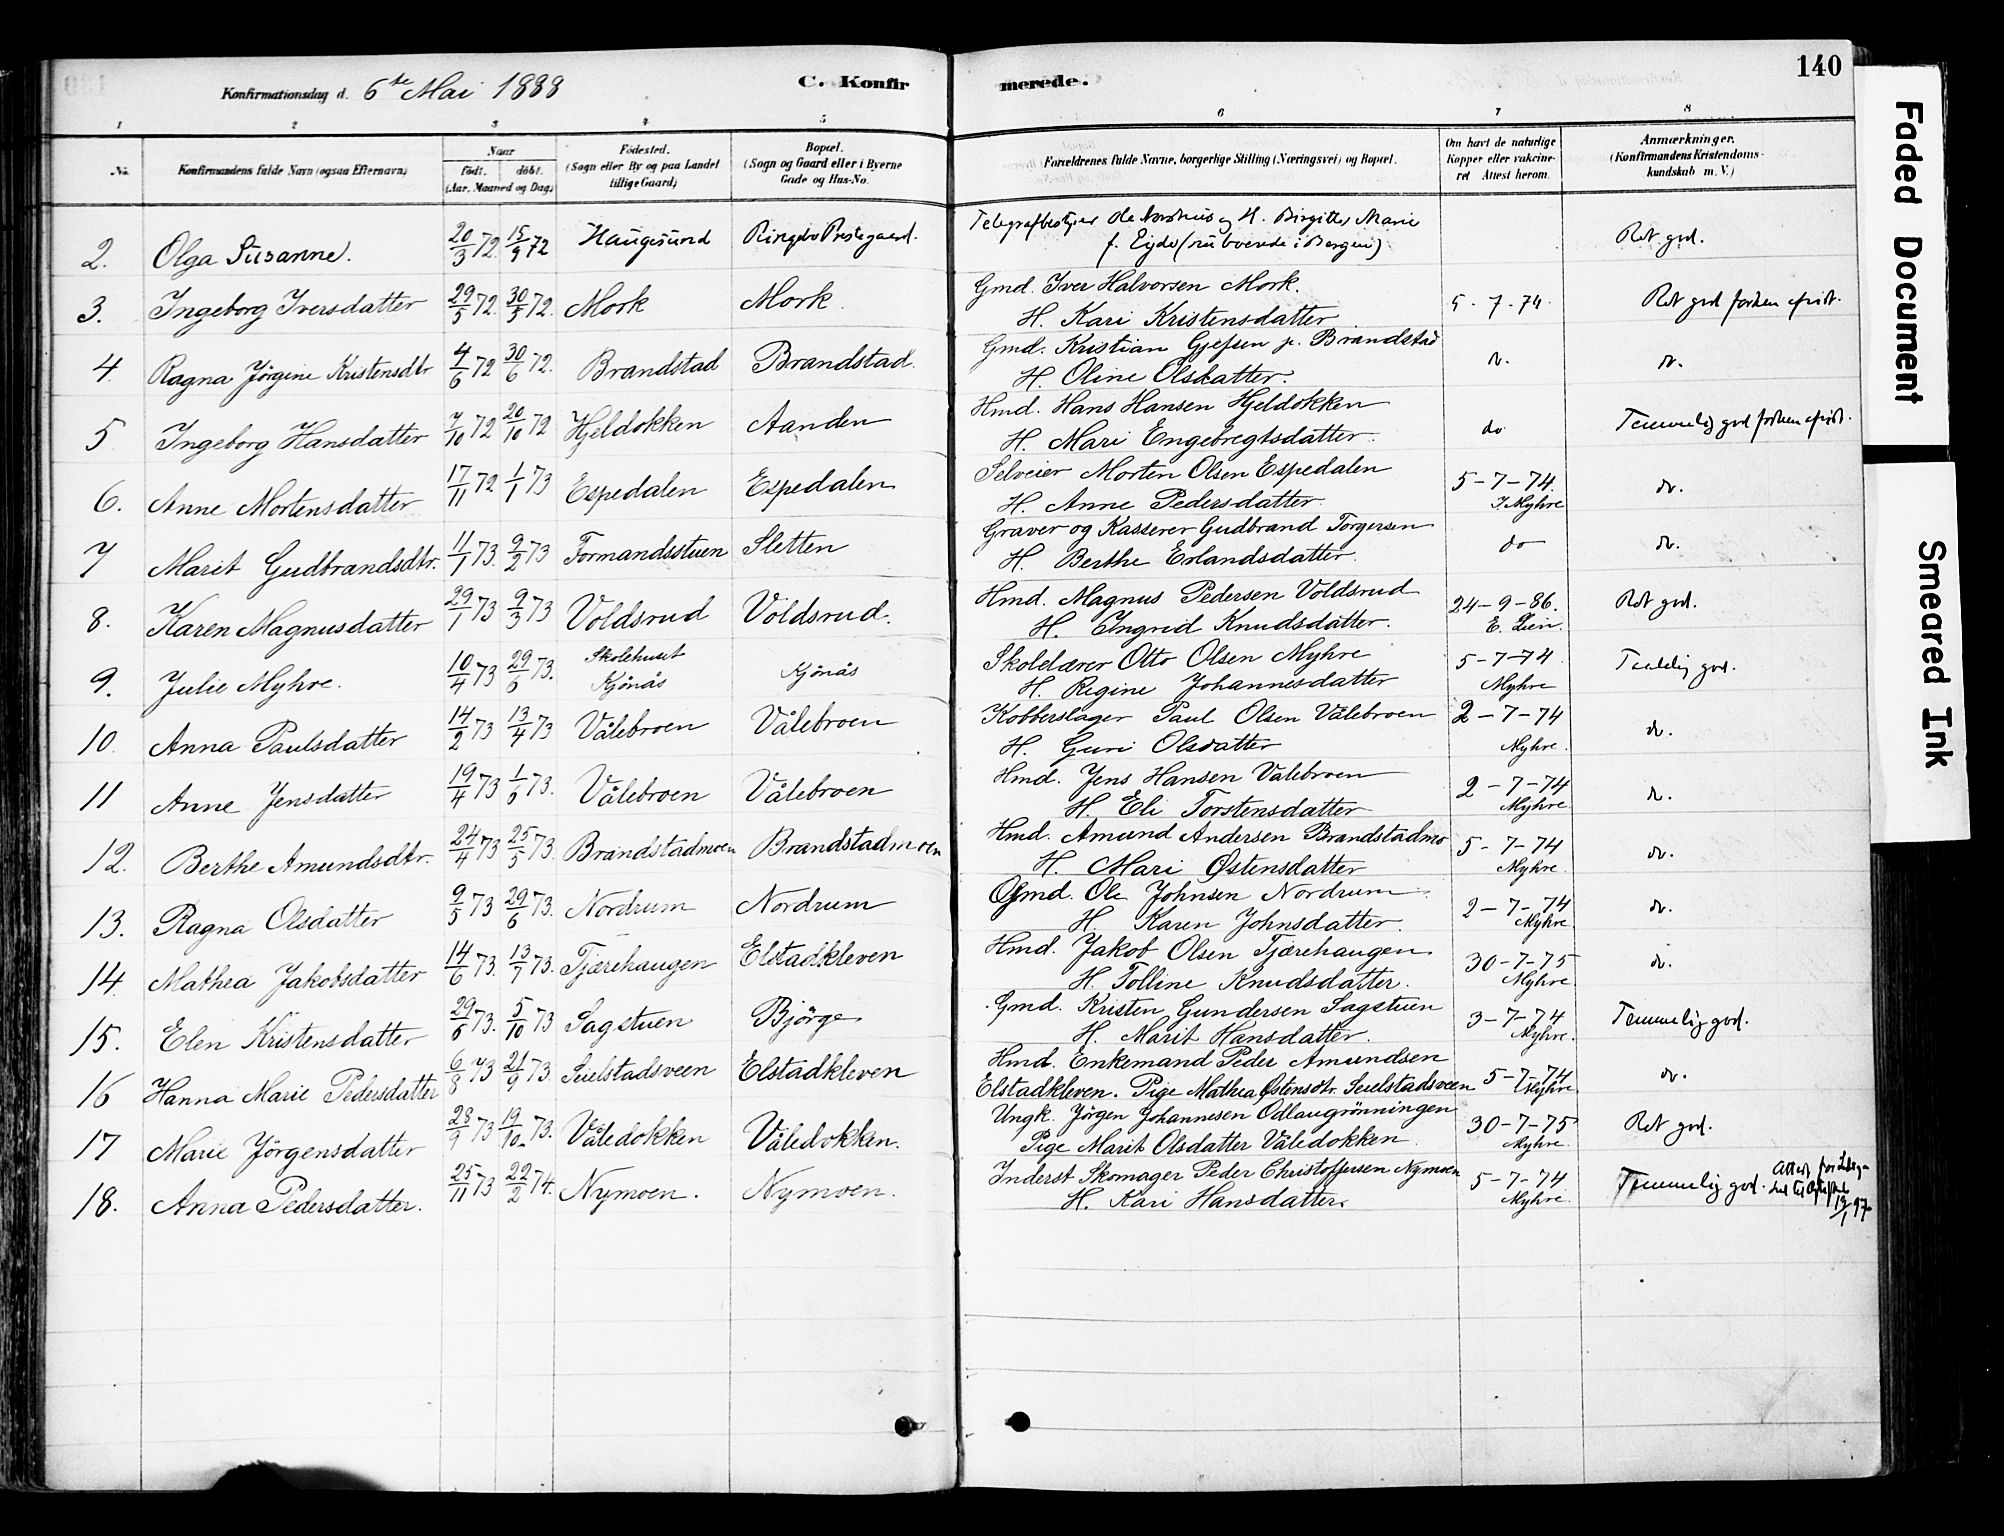 140
Konfirmationsdag d. 6te Mai 1888 C. Konfirmerede.
1 2 3 4 5 6 7 8
No. Konfirmandens fulde Navn (ogsaa Efternavn) Naar født. døbt. (Aar, Maaned og Dag) Fødested. (Sogn eller By og paa Landet tillige Gaard) Bopæl. (Sogn og Gaard eller i Byerne Gade og Hus-No. Forældrenes fulde Navne, borgerlige Stilling (Næringsvei) og Bopæl. Om havt de naturlige Kopper eller vakcineret Attest herom. Anmærkninger. (Konfirmandens Kristendomskundskab m. V.)
2. Olga Susanne. 20/3 72 15/9 72 Haugesund Ringebu Prestegaard. Telegrafbestyrer Ole Nordhus og H. Birgitte Marie Ret god.
f. Eyde (nu boende i Bergen)
3. Ingeborg Iversdatter 29/5 72. 30/5 72. Mork Mork. Gmd. Iver Halvorsen Mork. 5-7-74. Ret god
H. Kari Kristensdatter
4. Ragna Jørgine Kristensdtr 4/6 72 30/6 72. Brandstad Brandstad. Gmd. Kristian Gjefsen p. Brandstad do. do.
H. Oline Olsdatter.
5 Ingeborg Hansdatter 7/10 72 20/10 72 Hjeldokken Aanden Hmd. Hans Hansen Hjeldokken do Temmelig god
H. Mari Engebregtsdatter.
6. Anne Mortensdatter 17/11 72 1/1 73 Espedalen Espedalen Selveier Morten Olsen Espedalen 5-7-74. do.
H. Anne Pedersdatter J. Myhre
7 Marit Gudbrandsdtr. 11/1 73. 9/2 73 Formandsstuen Sletten Graver og Kasserer Gudbrand Torgersen do do.
H. Berthe Erlandsdatter.
8. Karen Magnusdatter 29/1 73 9/3 73 Voldsrud Voldsrud. Hmd. Magnus Pedersen Voldsrud 24-9-86. Ret god.
H. Ingrid Knudsdatter. E. Lien.
9. Julie Myhre. 10/4 73 29/6 73. Skolehuset Kjönås Kjönås Skolelærer Otto Olsen Myhre 5-7-74. god.
H. Regine Johannesdatter Myhre
10. Anna Paulsdatter 14/2 73 13/4 73 Vålebroen Vålebroen Kobberslager Paul Olsen Vålebroen 2-7-74 do.
H. Guri Olsdatter Myhre.
11 Anne Jensdatter 19/4 73 1/6 73. Vålebroen Vålebroen Hmd. Jens Hansen Valebroen 2-7-74 do.
H. Eli Torstensdatter Myhre.
12. Berthe Amundsdtr. 24/4 73 25/5 73. Brandstadmoen Brandstadmoen Hmd. Amund Andersen Brandstadmo 5-7-74 do.
H. Mari Østensdatter Myhre.
13. Ragna Olsdatter 9/5 73 29/6 73. Nordrum Nordrum Gmd. Ole Johnsen Nordrum 2-7-74 do.
H. Karen Johnsdatter. Myhre.
14. Mathea Jakobsdatter 14/6 73. 13/7 73. Tjærehaugen Elstadkleven Hmd. Jakob Olsen Tjærehaugen 30-7-75 do.
H. Tolline Knudsdatter. Myhre.
15. Elen Kristensdatter 29/6 73. 5/10 73 Sagstuen Bjørge Gmd. Kristen Gundersen Sagstuen 3-7-74 Temmelig god.
H. Marit Hansdatter. Myhre.
16 Hanna Marie Pedersdatter 6/8 73 21/9 73. Seielstadsveen Elstadkleven Hmd. Enkemand Peder Amundsen 5-7-74 do.
Elstadkleven. Pige Mathea Østensdtr. Seielstadsveen Myhre.
17 Marie Jörgensdatter 28/9 73 19/10 73. Våledokken Våledokken. Ungk. Jörgen Johannesen Odlaugrönningen 30-7-75 Ret god.
Pige Marit Olsdatter Våledokken Myhre.
18. Anna Pedersdatter. 25/11 73 22/2 74. Nymoen. Nymoen. Inderst Skomager Peder Christoffersen Nymoen 5-7-74 Temmelig god. Attest for
H. Kari Hansdatter. Myhre. 12/1 97
Faded Document
Smeared Ink